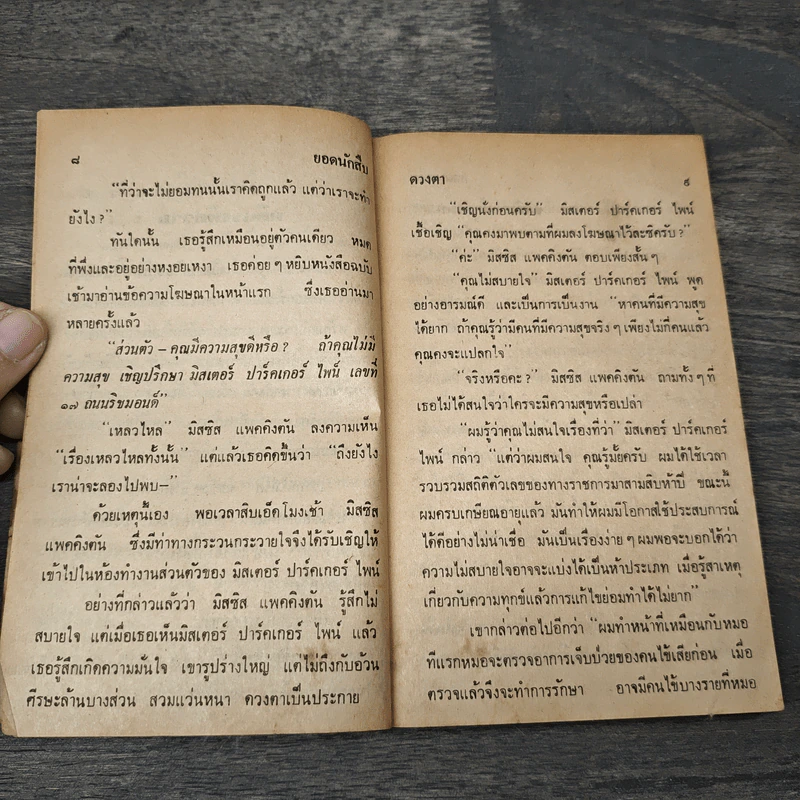 ๘ ยอดนักสืบ
“ที่ว่าจะไม่ยอมทนนั้นเราคิดถูกแล้ว แต่ว่าเราจะทำ
ยังไง ?”
ทันใดนั้น เธอรู้สึกเหมือนอยู่ตัวคนเดียว หมด
ที่พึ่งและอยู่อย่างหงอยเหงา เธอค่อย ๆ หยิบหนังสือฉบับ
เช้ามาอ่านข้อความโฆษณาในหน้าแรก ซึ่งเธออ่านมา
หลายครั้งแล้ว
“ส่วนตัว – คุณมีความสุขดีหรือ ? ถ้าคุณไม่มี
ความสุข เชิญปรึกษา มิสเตอร์ ปาร์คเกอร์ ไพน์ เลขที่
๑๗ ถนนริชมอนด์”
“เหลวไหล” มิสซิส แพคคิงตัน ลงความเห็น
“เรื่องเหลวไหลทั้งนั้น” แต่แล้วเธอคิดขึ้นว่า “ถึงยังไง
เราน่าจะลองไปพบ–”
ด้วยเหตุนี้เอง พอเวลาสิบเอ็ดโมงเช้า มิสซิส
แพคคิงตัน ซึ่งมีท่าทางกระวนกระวายใจจึงได้รับเชิญให้
เข้าไปในห้องทำงานส่วนตัวของ มิสเตอร์ ปาร์คเกอร์ ไพน์
อย่างที่กล่าวแล้วว่า มิสซิส แพคคิงตัน รู้สึกไม่
สบายใจ แต่เมื่อเธอเห็นมิสเตอร์ ปาร์คเกอร์ ไพน์ แล้ว
เธอรู้สึกเกิดความมั่นใจ เขารูปร่างใหญ่ แต่ไม่ถึงกับอ้วน
ศีรษะล้านบางส่วน สวมแว่นหนา ดวงตาเป็นประกาย
ดวงตา ๙
“เชิญนั่งก่อนครับ” มิสเตอร์ ปาร์คเกอร์ ไพน์
เชื้อเชิญ “คุณคงมาพบตามที่ผมลงโฆษณาไว้ละซิครับ ?”
“ค่ะ” มิสซิส แพคคิงตัน ตอบเพียงสั้น ๆ
“คุณไม่สบายใจ” มิสเตอร์ ปาร์คเกอร์ ไพน์ พูด
อย่างอารมณ์ดี และเป็นการเป็นงาน “หาคนที่มีความสุข
ได้ยาก ถ้าคุณรู้ว่ามีคนที่มีความสุขจริง ๆ เพียงไม่กี่คนแล้ว
คุณคงจะแปลกใจ”
“จริงหรือคะ ?” มิสซิส แพคคิงตัน ถามทั้ง ๆ ที่
เธอไม่ได้สนใจว่าใครจะมีความสุขหรือเปล่า
“ผมรู้ว่าคุณไม่สนใจเรื่องที่ว่า” มิสเตอร์ ปาร์คเกอร์
ไพน์ กล่าว “แต่ว่าผมสนใจ คุณรู้มั้ยครับ ผมได้ใช้เวลา
รวบรวมสถิติตัวเลขของทางราชการมาสามสิบห้าปี ขณะนี้
ผมครบเกษียณอายุแล้ว มันทำให้ผมมีโอกาสใช้ประสบการณ์
ได้ดีอย่างไม่น่าเชื่อ มันเป็นเรื่องง่าย ๆ ผมพอจะบอกได้ว่า
ความไม่สบายใจอาจจะแบ่งได้เป็นห้าประเภท เมื่อรู้สาเหตุ
เกี่ยวกับความทุกข์แล้วการแก้ไขย่อมทำได้ไม่ยาก”
เขากล่าวต่อไปอีกว่า “ผมทำหน้าที่เหมือนกับหมอ
ทีแรกหมอจะตรวจอาการเจ็บป่วยของคนไข้เสียก่อน เมื่อ
ตรวจแล้วจึงจะทำการรักษา อาจมีคนไข้บางรายที่หมอ